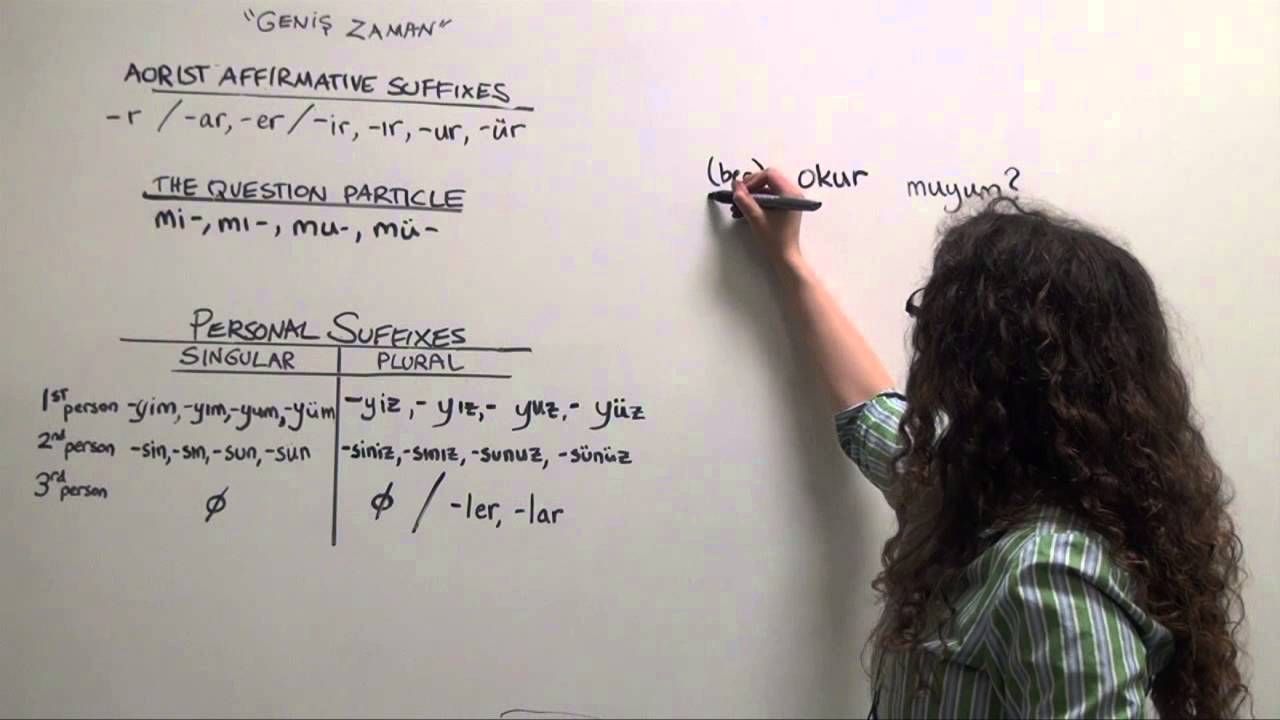 "GENİŞ ZAMAN"
AORIST AFFIRMATIVE SUFFIXES
-r / -ar, -er / -ir, -ır, -ur, -ür
THE QUESTION PARTICLE
mi-, mı-, mu-, mü-
PERSONAL SUFFIXES
SINGULAR PLURAL
1ST person -yim, -yım, -yum, -yüm -yiz, - yız, - yuz, - yüz
2nd person -sin, -sın, -sun, -sün -siniz, -sınız, -sunuz, -sünüz
3rd person ϕ ϕ / -ler, -lar
okur muyum?